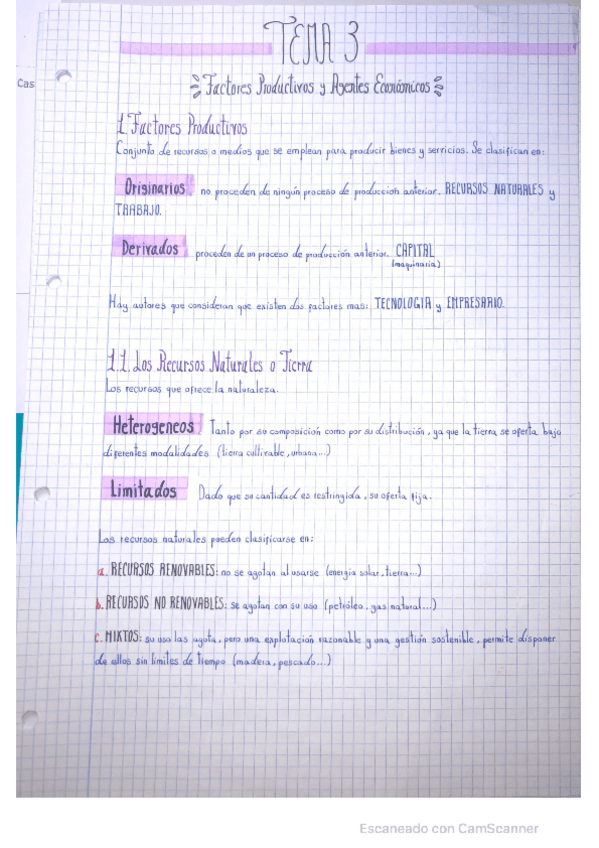 TEMA 3
Cas
Factores Productivos y Agentes Económicos
1. Factores Productivos
Conjunto de recursos o medios que se emplean para producir bienes y servicios. Se clasifican en:
Originarios no proceden de ningún proceso de produccion anterior. RECURSOS NATURALES y
TRABAJO.
Derivados proceden de un proceso de producción anterior. CAPITAL
(maquinaria)
Hay autores que consideran que existen dos factores mas: TECNOLOGIA y EMPRESARIO.
1.1. Los Recursos Naturales o Tierra
Los recursos que ofrece la naturaleza.
Heterogeneos Tanto por su composición como por su distribución, ya que la tierra se oferta bajo
diferentes modalidades (tierra cultivable, urbana...)
Limitados Dado que su cantidad es restringida, su oferta fija.
Los recursos naturales pueden clasificarse en:
a. RECURSOS RENOVABLES: no se agotan al usarse (energía solar, tierra...)
b. RECURSOS NO RENOVABLES: se agotan con su uso (petróleo, gas natural...)
c. MIXTOS: su uso las agota, pero una explotación razonable y una gestión sostenible, permite disponer
de ellos sin limites de tiempo (madera, pescado...)
Escaneado con CamScanner